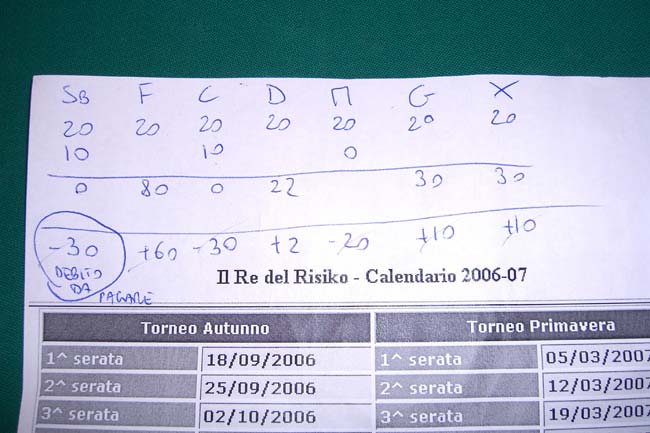 SB F C D Π G X
20 20 20 20 20 20 20
10 10 0
0 80 0 22 30 30
-30 +60 -30 +2 -20 +10 +10
DEBITO
DA
PAGARE
Il Re del Risiko - Calendario 2006-07
Torneo Autunno Torneo Primavera
1^ serata 18/09/2006 1^ serata 05/03/2007
2^ serata 25/09/2006 2^ serata 12/03/2007
3^ serata 02/10/2006 3^ serata 19/03/2007